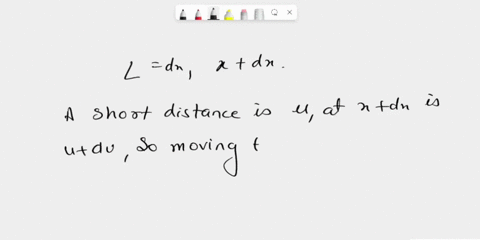 L = dx, x + dx.
A short distance is u, at x+dx is
u+du, So moving t